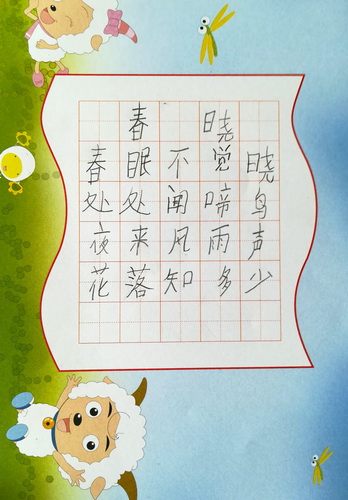 春 晓
春眠不觉晓
处处闻啼鸟
夜来风雨声
花落知多少